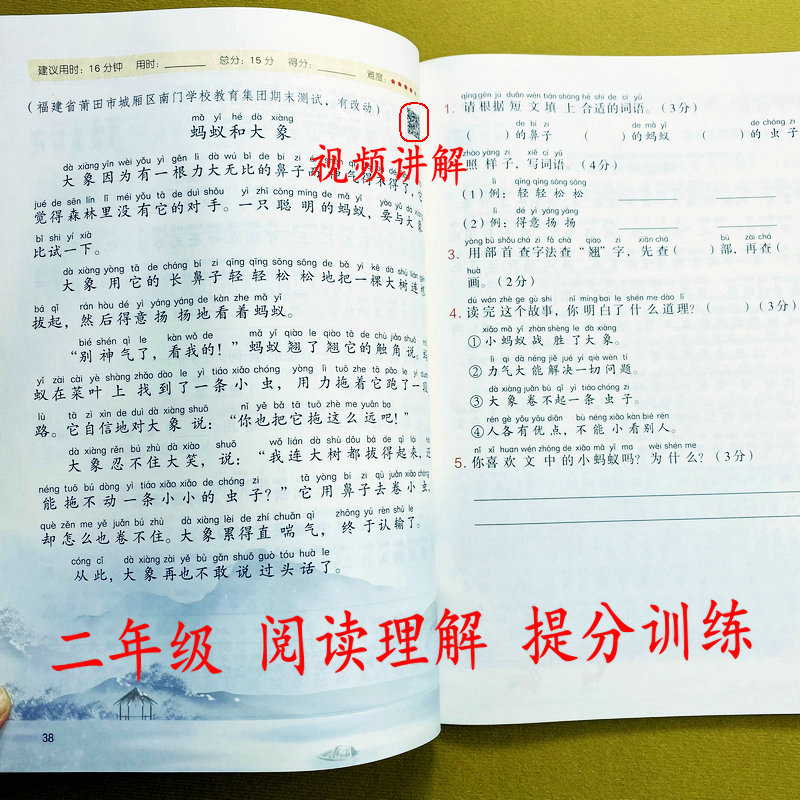 建议用时：16分钟 用时：______ 总分：15分 得分：______ 难度：★★★★
（福建省莆田市城厢区南门学校教育集团期末测试，有改动）
mǎ yǐ hé dà xiàng
蚂蚁和大象
视频讲解
dà xiàng yīn wèi yǒu yì gēn lì dà wú bǐ de bí zi
大象因为有一根力大无比的鼻子而神气得不得了，它
jué de sēn lín lǐ méi yǒu tā de duì shǒu yì zhī cōng míng de mǎ yǐ yào yǔ dà xiàng
觉得森林里没有它的对手。一只聪明的蚂蚁，要与大象
bǐ shì yí xià
比试一下。
dà xiàng yòng tā de cháng bí zi qīng qīng sōng sōng de bǎ yì kē dà shù lián gēn
大象用它的长鼻子轻轻松松地把一棵大树连根
bá qǐ rán hòu dé yì yáng yáng de kàn zhe mǎ yǐ
拔起，然后得意扬扬地看着蚂蚁。
bié shén qì le kàn wǒ de mǎ yǐ qiào le qiào tā de chù jiǎo shuō mǎ
“别神气了，看我的！”蚂蚁翘了翘它的触角说。蚂
yǐ zài cài yè shàng zhǎo dào le yì tiáo xiǎo chóng yòng lì tuō zhe tā pǎo le yí duàn
蚁在菜叶上找到了一条小虫，用力拖着它跑了一段
lù tā zì xìn de duì dà xiàng shuō nǐ yě bǎ tā tuō zhè me yuǎn ba
路。它自信地对大象说：“你也把它拖这么远吧！”
dà xiàng rěn bú zhù dà xiào shuō wǒ lián dà shù dōu bá de qǐ lái
大象忍不住大笑，说：“我连大树都拔得起来，还
néng tuō bú dòng yì tiáo xiǎo xiǎo de chóng zi tā yòng bí zi qù juǎn xiǎo chóng
能拖不动一条小小的虫子？”它用鼻子去卷小虫，
què zěn me yě juǎn bú zhù dà xiàng lèi de zhí chuǎn qì zhōng yú rèn shū le
却怎么也卷不住。大象累得直喘气，终于认输了。
cóng cǐ dà xiàng zài yě bù gǎn shuō guò tóu huà le
从此，大象再也不敢说过头话了。
38
qǐng gēn jù duǎn wén tián shàng hé shì de cí yǔ
1. 请根据短文填上合适的词语。（3分）
de mǎ yǐ
（ ）的鼻子 （ ）的蚂蚁 （ ）的虫子
zhào yàng zi xiě cí yǔ
照样子，写词语。（4分）
lì qīng qīng sōng sōng
（1）例：轻轻松松
lì dé yì yáng yáng
（2）例：得意扬扬
yòng bù shǒu chá zì fǎ chá qiào zì xiān chá bù zài chá
3. 用部首查字法查“翘”字，先查（ ）部，再查（ ）
huà
画。（2分）
dú wán zhè ge gù shi nǐ míng bai le shén me dào lǐ
4. 读完这个故事，你明白了什么道理？（ ）（3分）
xiǎo mǎ yǐ zhàn shèng le dà xiàng
①小蚂蚁战胜了大象。
lì qi dà néng jiě jué yí qiè wèn tí
②力气大能解决一切问题。
dà xiàng juǎn bù qǐ yì tiáo chóng zi
③大象卷不起一条虫子。
rén gè yǒu yōu diǎn bù néng xiǎo kàn bié rén
④人各有优点，不能小看别人。
nǐ xǐ huan wén zhōng de xiǎo mǎ yǐ ma wèi shén me
5. 你喜欢文中的小蚂蚁吗？为什么？（3分）
二年级 阅读理解 提分训练